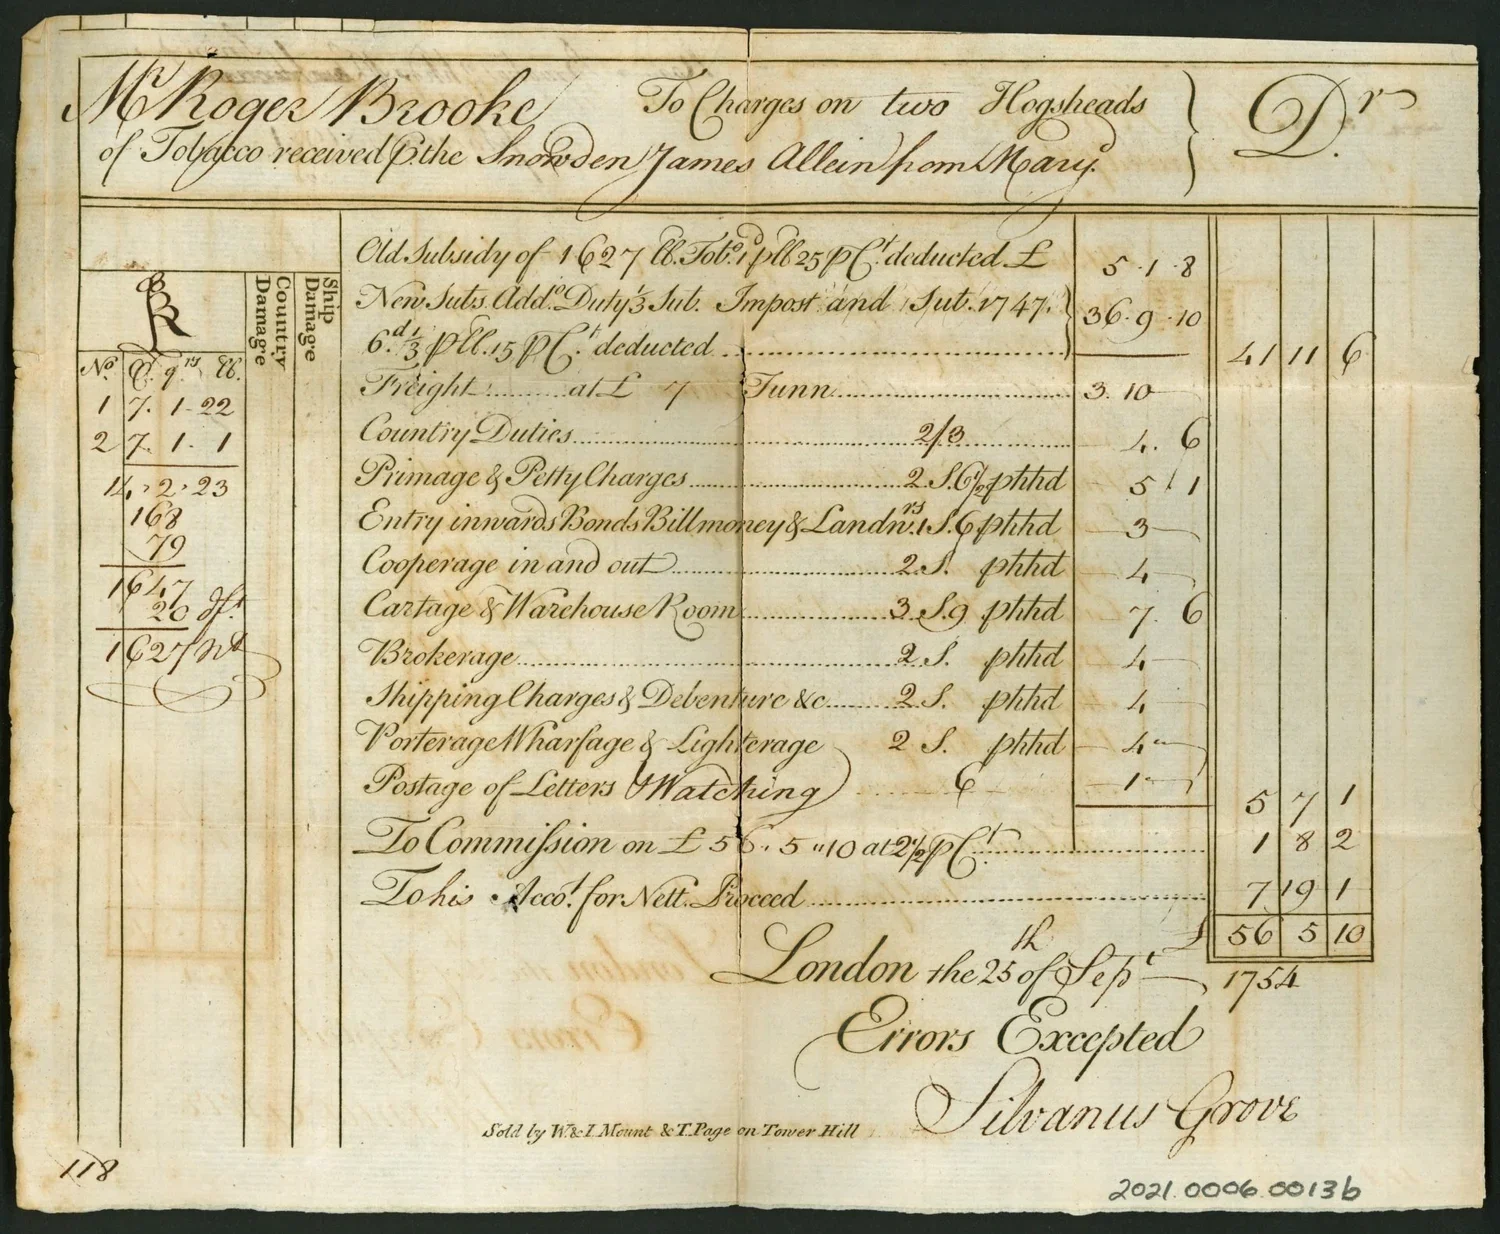 Mr. Roger Brooke To Charges on two Hogsheads
of Tobacco received p. the Snowden James Allein from Maryd.
Dr.
Old Subsidy of 1627 lb. Tobo. 1d p lb 25 p Ct. deducted £ 5 . 1 . 8
New Subs. Addl. Duty 1/3 Sub. Impost and Sub. 1747. 36 . 9 . 10
6d. 1/3 p lb. 15 p Ct. deducted 41 11 6
Freight at £ 7 Tunn 3. 10
Country Duties 2/3 4. 6
Primage & Petty Charges 2 S. 6 1/2 p hhd 5 1
Entry inwards Bonds Billmoney & Landwrs. 1 S. 6 p hhd 3
Cooperage in and out 2 S. p hhd 4
Cartage & Warehouse Room 3 S. 9 p hhd 7. 6
Brokerage 2 S. p hhd 4
Shipping Charges & Debenture &c 2 S. p hhd 4
Porterage Wharfage & Lighterage 2 S. p hhd 4
Postage of Letters & Watching 6 1
5 7 1
To Commission on £ 56. 5 " 10 at 2 1/2 p Ct. 1 8 2
To his Accot. for Nett. Proceed 7 19 1
£ 56 5 10
London the 25th of Sept 1754
Errors Excepted
Silvanus Grove
Ship Damage
Country Damage
RB
No. C. qrs lb.
1 7. 1 22
2 7. 1. 1
14. 2. 23
168
79
1647
20 dft
1627 Nt
Sold by W. & I. Mount & T. Page on Tower Hill
118
2021.0006.0013b